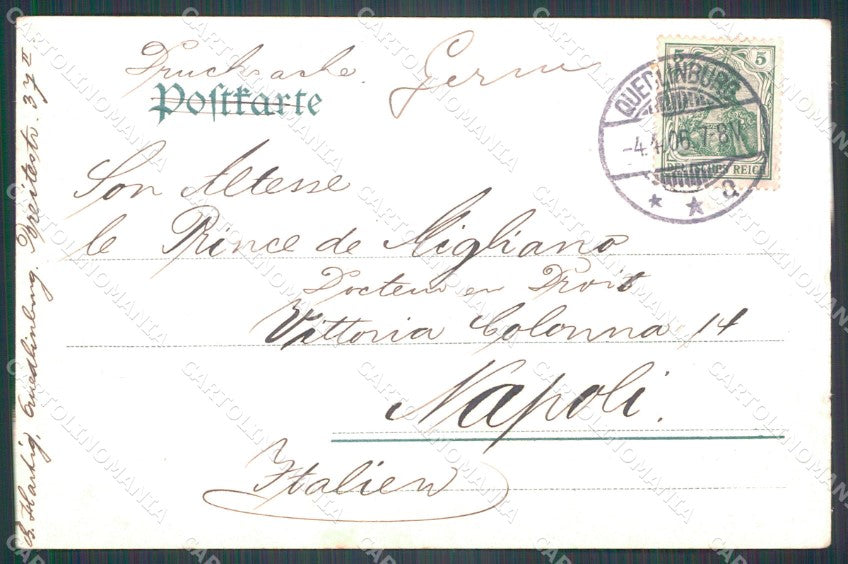 Drucksache. Germ
Postkarte
5 5
QUEDLINBURG
-4.4.06. 7-8 V.
REICH
* * a
Son Altesse
le Prince de Migliano
Docteur en Droit
Vittoria Colonna 14
Napoli.
Italien
Hartig, Quedlinburg. Breitestr. 37 II
CARTOLINOMANIA